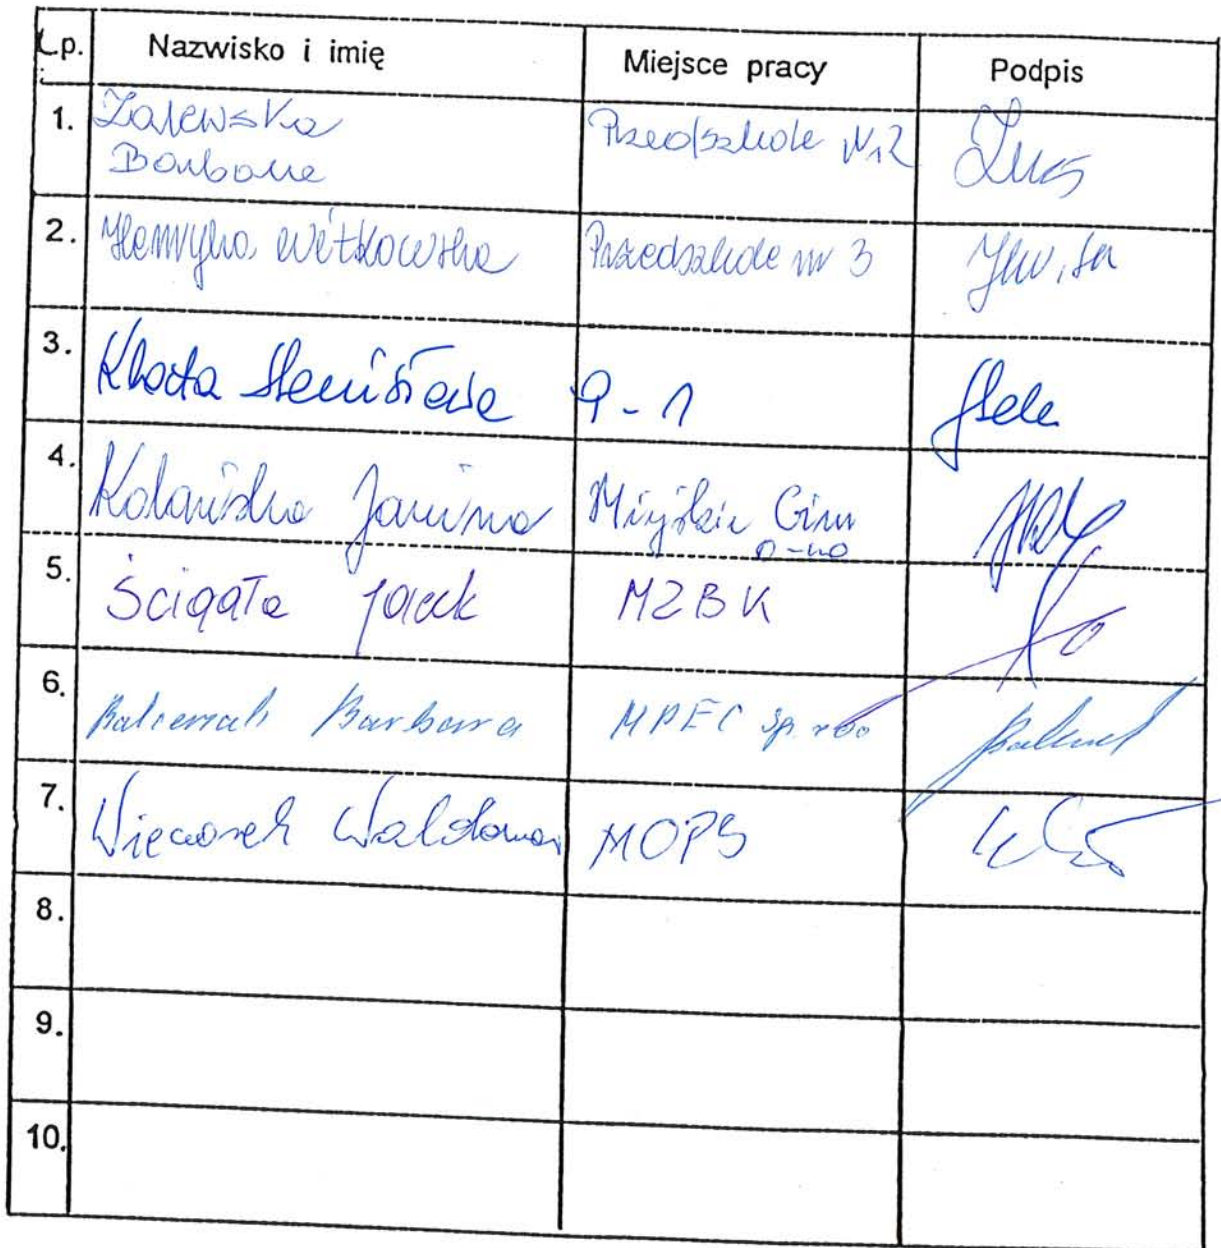 Lp. Nazwisko i imię Miejsce pracy Podpis
1. Zalewska Przedszkole Nr 2
Barbara
2. Henryka Witkowska Przedszkole nr 3
3. Stanisława P-1
4. Janina Miejskie Gim
5. Ścigała Jacek MZBK
6. Barbara MPEC Sp. zoo
7. Wieczorek Waldemar MOPS
8.
9.
10.